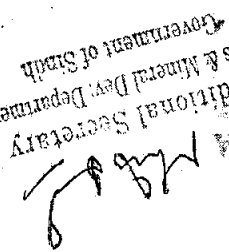 ditional Secretary
s & Mineral Dev: Departme
Government of Sindh